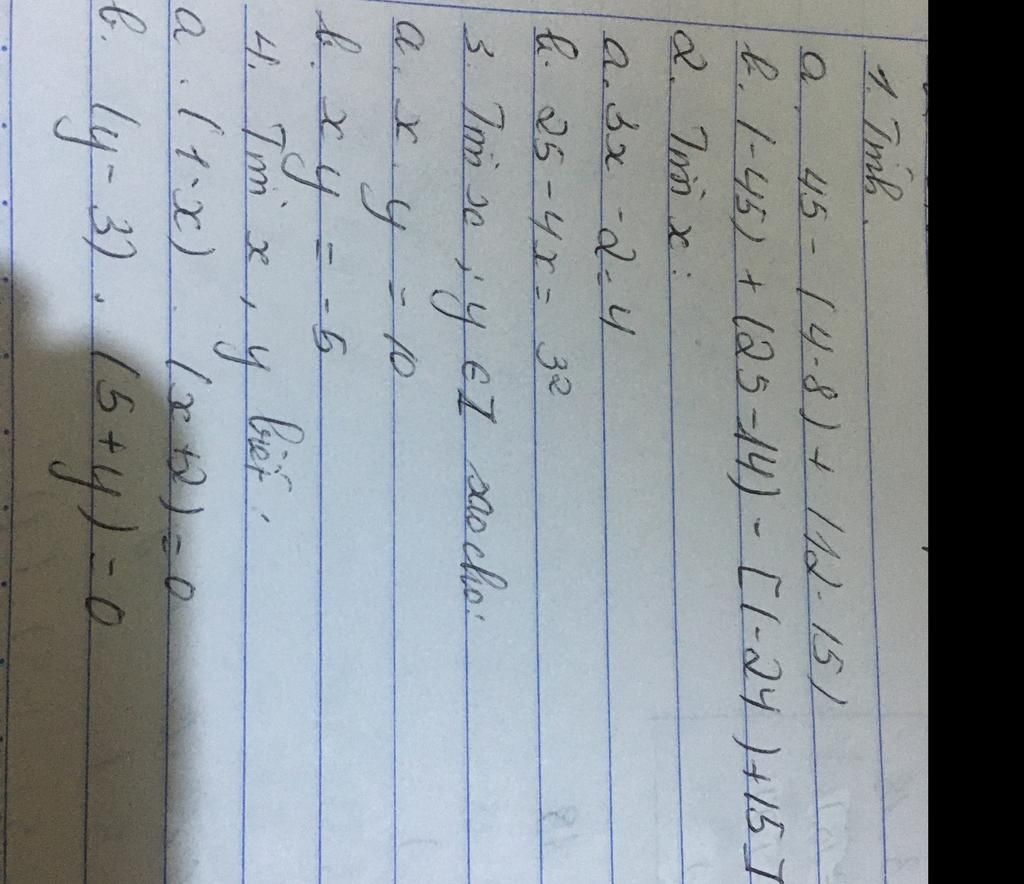 1. Tính.
a. 45 - (4-8) + (12-15)
b. (-45) + (25-14) - [(-24) + 15]
2. Tìm x:
a. 3x - 2 = 4
b. 25 - 4x = 3²
3. Tìm x, y ∈ Z sao cho:
a. x. y = 10
b. x y = -5
4. Tìm x, y biết:
a. (1-x) . (x+2) = 0
b. (y-3) . (5+y) = 0